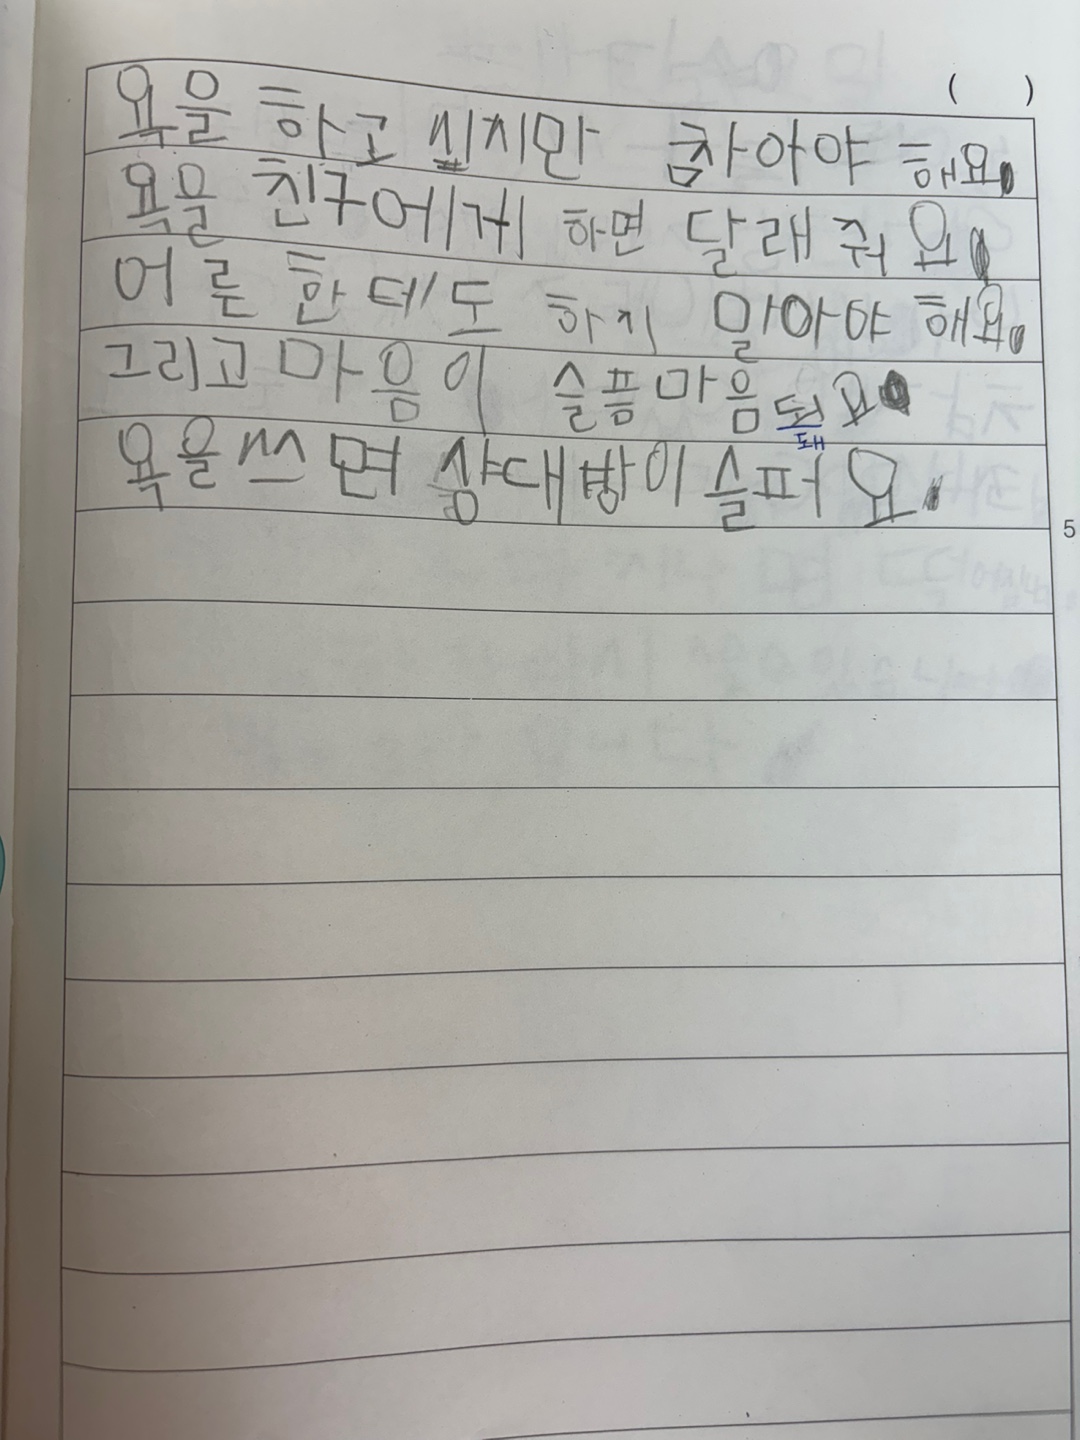 (　　)
욕을 하고 싶지만 참아야 해요.
욕을 친구에게 하면 달래줘요.
어른한데도 하지 말아야 해요.
그리고 마음이 슬픔마음 돼요.
돼
욕을쓰면 상대방이슬퍼요.
5